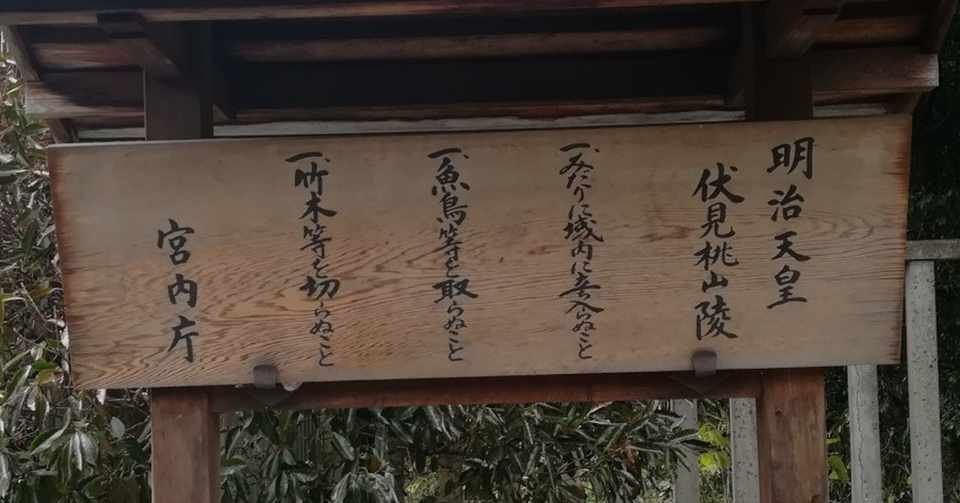 明治天皇
伏見桃山陵
一、みだりに域内に立入らぬこと
一、魚鳥等を取らぬこと
一、竹木等を切らぬこと
宮内庁